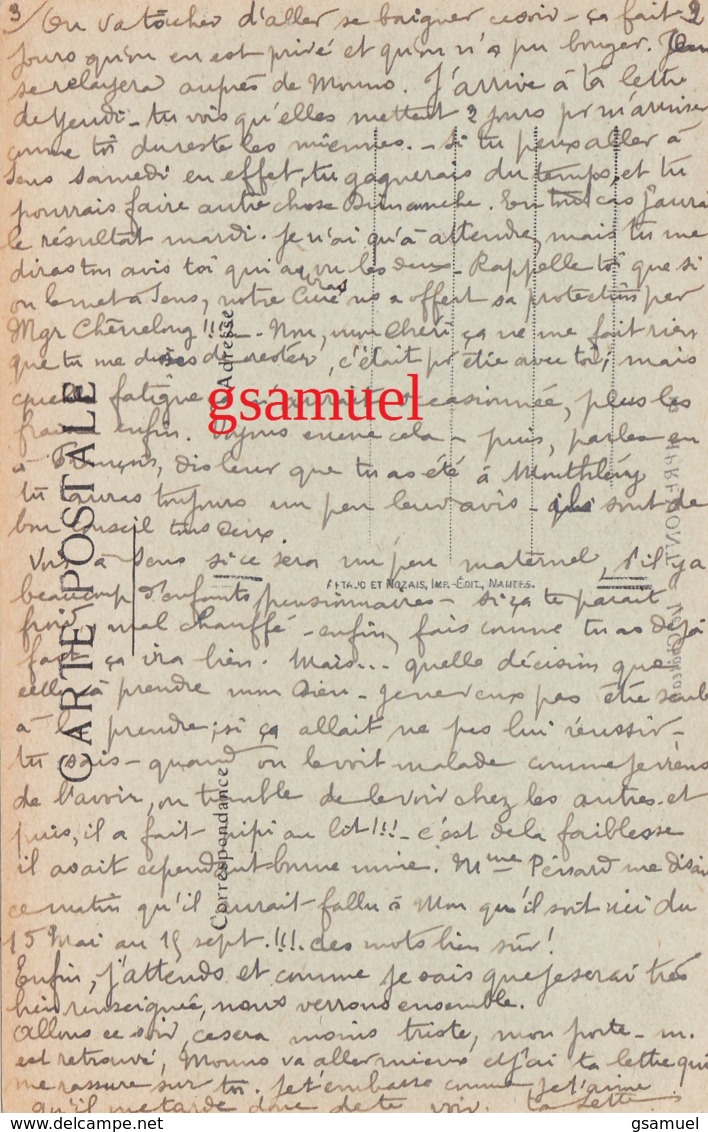 3/ On va tâcher d'aller se baigner ce soir - ça fait 2
jours qu'on en est privé et qu'on n'a pu bouger.
se relayera auprès de Momo. J'arrive à ta lettre
de Jeudi - tu vois qu'elles mettent 2 jours pr m'arriver
comme toi du reste les miennes. - Si tu peux aller à
Sens samedi en effet, tu gagnerais du temps, et tu
pourrais faire autre chose Dimanche. En tous cas j'aurai
le résultat mardi. Je n'ai qu'à attendre, mais tu me
diras ton avis toi qui as vu les deux - Rappelle toi que si
on le met à Sens, notre Curé ns a offert sa protection par
Mgr Chênelong !! - Non, mon Chéri ça ne me fait rien
que tu me dises de rester, c'était pr être avec toi, mais
quelle fatigue occasionnée, plus les
frais enfin. Voyons encore cela - puis, parles en
à François, dis leur que tu as été à Montlhéry
tu auras toujours un peu leur avis - ils sont de
bon conseil tous deux.
Vois à Sens si ce sera un peu maternel, s'il y a
beaucoup d'enfants pensionnaires - si ça te parait
froid, mal chauffé - enfin, fais comme tu as déjà
fait ça ira bien. Mais... quelle décision que
celle à prendre mon Dieu - je ne veux pas être seule
à la prendre, si ça allait ne pas lui réussir -
tu sais - quand on le voit malade comme je viens
de l'avoir, on tremble de le voir chez les autres. et
puis, il a fait pipi au lit !!! - c'est de la faiblesse
il avait cependant bonne mine. Mme me disait
ce matin qu'il aurait fallu à Mom qu'il soit ici du
15 Mai au 15 sept. !!! des mots bien sûr !
Enfin, j'attends et comme je sais que je serai très
bien renseignée, nous verrons ensemble.
Allons ce soir, ce sera moins triste, mon porte-m.
est retrouvé, Momo va aller mieux et j'ai ta lettre qui
me rassure sur toi. Je t'embrasse comme je t'aime
qu'il me tarde donc de te voir. ta
CARTE POSTALE
Correspondance
Adresse
ARTAUD ET NOZAIS, IMP.-ÉDIT., NANTES.
gsamuel
gsamuel